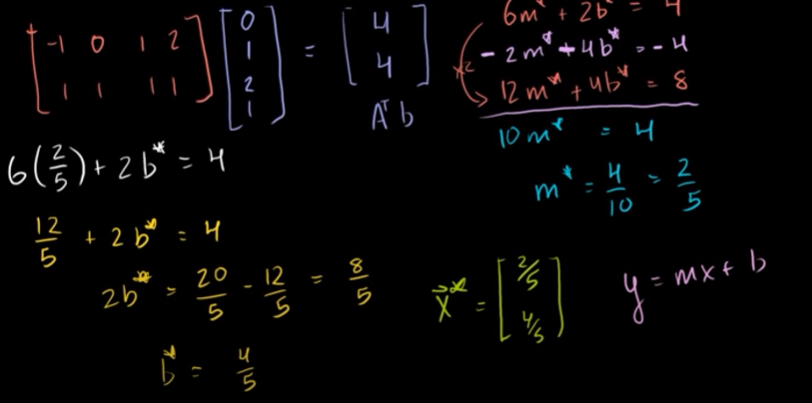 [-1 0 1 2; 1 1 1 1] [0; 1; 2; 1] = [4; 4]
Aᵀb
6m* + 2b* = 4
-2m* - 4b* = -4
×2
12m* + 4b* = 8
10m* = 4
m* = 4/10 = 2/5
6(2/5) + 2b* = 4
12/5 + 2b* = 4
2b* = 20/5 - 12/5 = 8/5
b* = 4/5
x⃗* = [2/5; 4/5]
y = mx + b